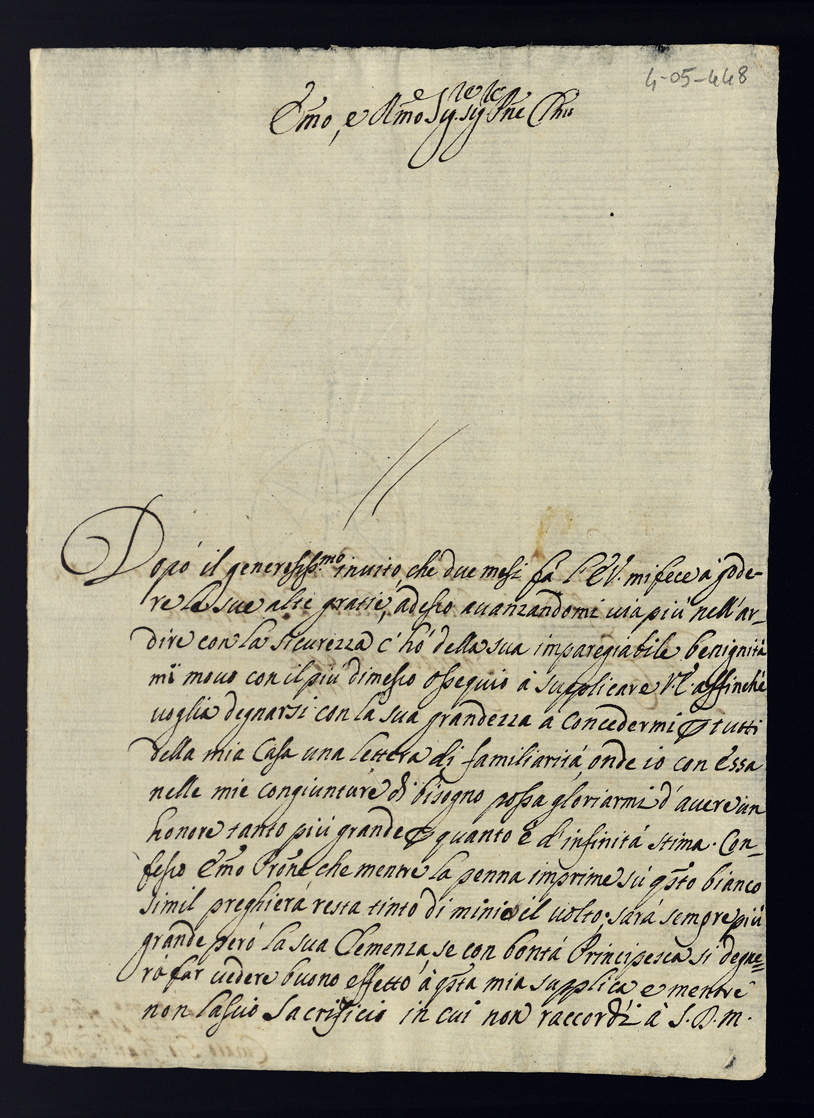 4-05-448
Em̃o, e Rm̃o Sig.re Sig.re Prñe Cm̃o
Dopó il generosiss.mo inuito, che due mesi fá l'EV. mi fece a gode-
re le sue alte gratie, adesso auanzandomi uia piú nell'ar-
dire con la sicurezza c'hó della sua impareggiabile benignitá
mi mouo con il piú dimesso ossequio á supplicare VE. affinché
uoglia degnarsi con la sua grandezza á concedermi ꝑ tutti
della mia Casa una lettera di familiaritá, onde io con Essa
nelle mie congiunture di bisogno possa gloriarmi d'auere un
honore tanto piú grande ꝑ quanto é d'infinitá stima. Con-
fesso Em̃o Prõne, che mentre la penna imprime sú q̃sto bianco
simil preghierá resta tinto di minio il uolto; sará sempre piú
grande peró la sua Clemenza, se con bontá Principesca si degne=
rá far uedere buono effetto á q̃sta mia supplica e mentre
non lascio Sacrificio in cui non raccordi á S. D. M.